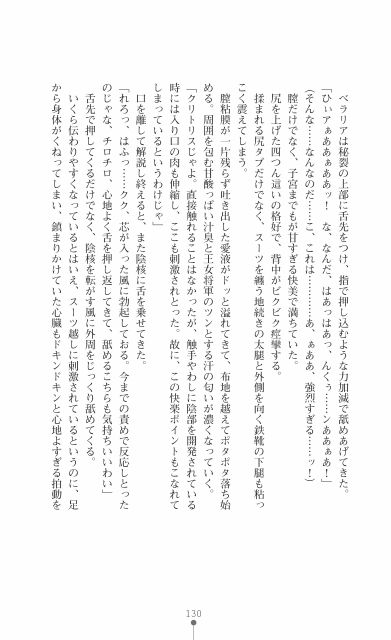 ベラリアは秘裂の上部に舌先をつけ、指で押し込むような力加減で舐めあげてきた。
「ひぃアぁああぁああッ！　な、なんだ、はあっはあっ、んくぅ……ンああぁあ！」
（そんな……なんなのだ……こ、これは…………あ、ぁああ、強烈すぎる……ッ！）
膣だけでなく、子宮までもが甘すぎる快美で満ちていた。
尻を上げた四つん這いの格好で、背中がビクビク痙攣する。
揉まれる尻タブだけでなく、スーツを纏う地続きの太腿と外側を向く鉄靴の下腿も粘っ
こく震えてしまう。
膣粘膜が一片残らず吐き出した愛液がドッと溢れてきて、布地を越えてボタボタ落ち始
める。周囲を包む甘酸っぱい汁臭と王女将軍のツンとする汗の匂いが濃くなっていく。
「クリトリスじゃよ。直接触れることはなかったが、触手やわしに陰部を開発されている
時には入り口の肉も伸縮し、ここも刺激されとった。故に、この快楽ポイントもこなれて
しまっているというわけじゃ」
口を離して解説し終えると、また陰核に舌を乗せてきた。
「れろっ、はふっ……クク、芯が入った風に勃起しておる。今までの責めで反応しとった
のじゃな、チロチロ、心地よく舌を押し返してきて、舐めるこちらも気持ちいいわい」
舌先で押してくるだけでなく、陰核を転がす風に外周をじっくり舐めてくる。
いくら伝わりやすくなっているとはいえ、スーツ越しに刺激されているというのに、足
から身体がくねってしまい、鎮まりかけていた心臓もドキンドキンと心地よすぎる拍動を
130